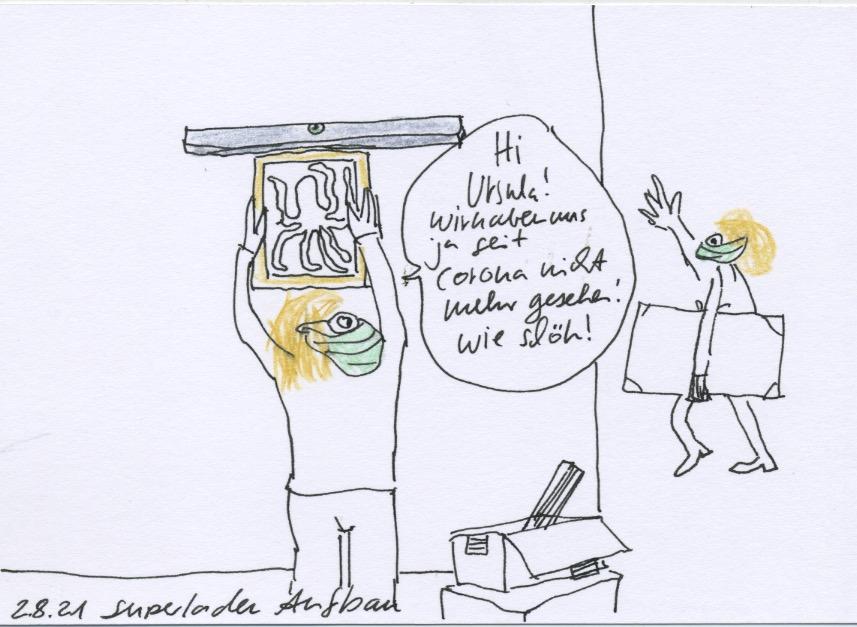 Hi
Ursula!
wir haben uns
ja seit
Corona nicht
mehr gesehen!
wie schön!
2.8.21 superladen Aufbau